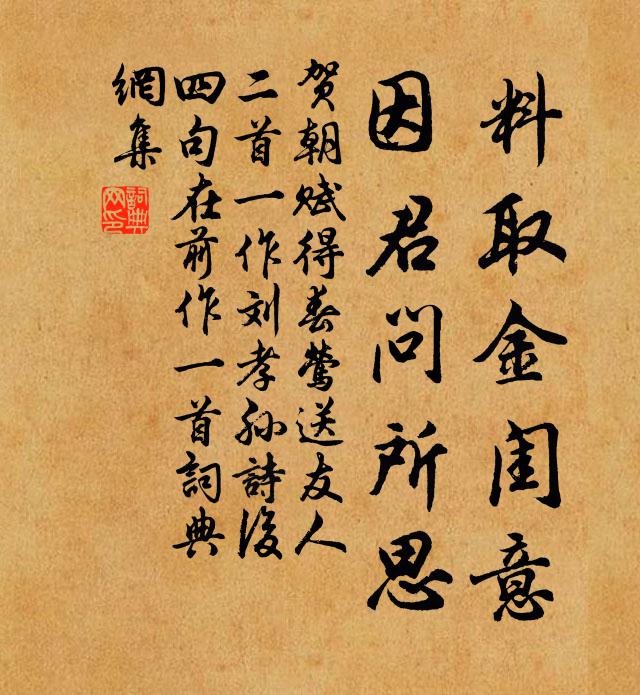 料取金闺意
因君问所思
贺朝赋得春莺送友人
二首一作刘孝孙詩後
四句在前作一首詞典
網集
詞典
网印